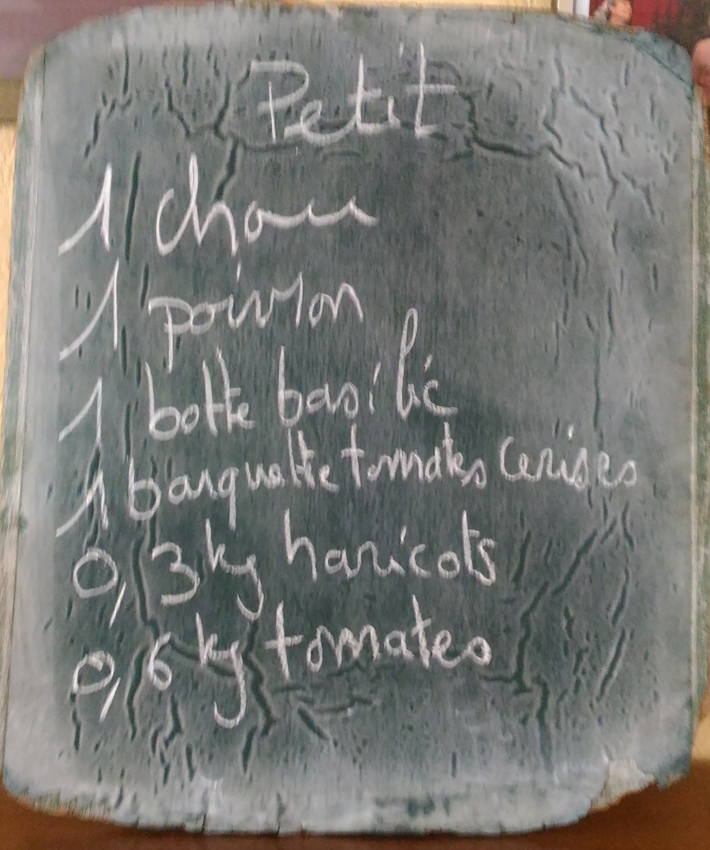 Petit
1 chou
1 poivron
1 botte basilic
1 barquette tomates cerises
0,3 kg haricots
0,6 kg tomates